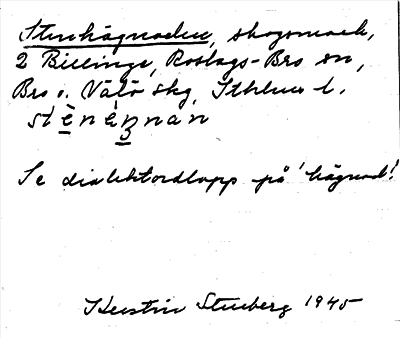 Stenhägnaden, skogsmark,
2 Billinge, Roslags-Bro sn,
Bro o. Vätö skg, Sthlms l.
Se dialektordlapp på 'hägnad'!
Kerstin Stenberg 1945